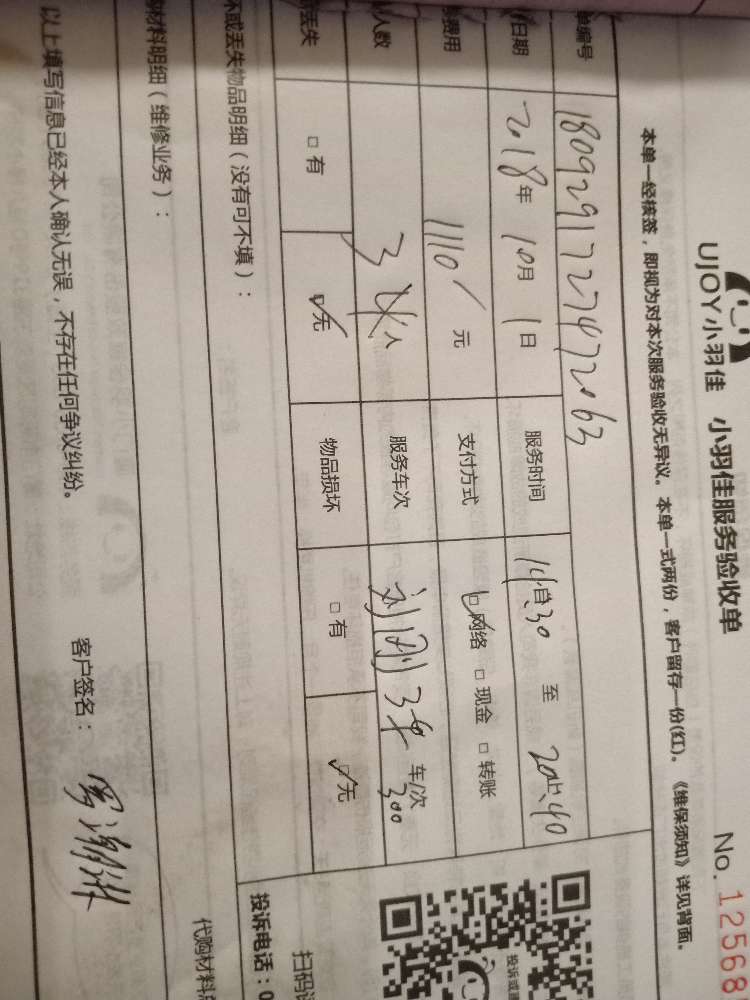 UJOY小羽佳 小羽佳服务验收单
No. 12568
本单一经核签，即视为对本次服务验收无异议。本单一式两份，客户留存一份(红)。《维保须知》详见背面。
单编号 180929172747 2063
日期 2018年 10月 1日 服务时间 14:30 至 20:40
费用 1110 元 支付方式 ☑网络 □现金 □转账
人数 3 人 服务车次 3车 车/次 300
丢失 □有 ☑无 物品损坏 □有 ☑无
坏或丢失物品明细（没有可不填）：
材料明细（维修业务）：
以上填写信息已经本人确认无误，不存在任何争议纠纷。 客户签名：
投诉或
扫码
投诉电话：0
代购材料